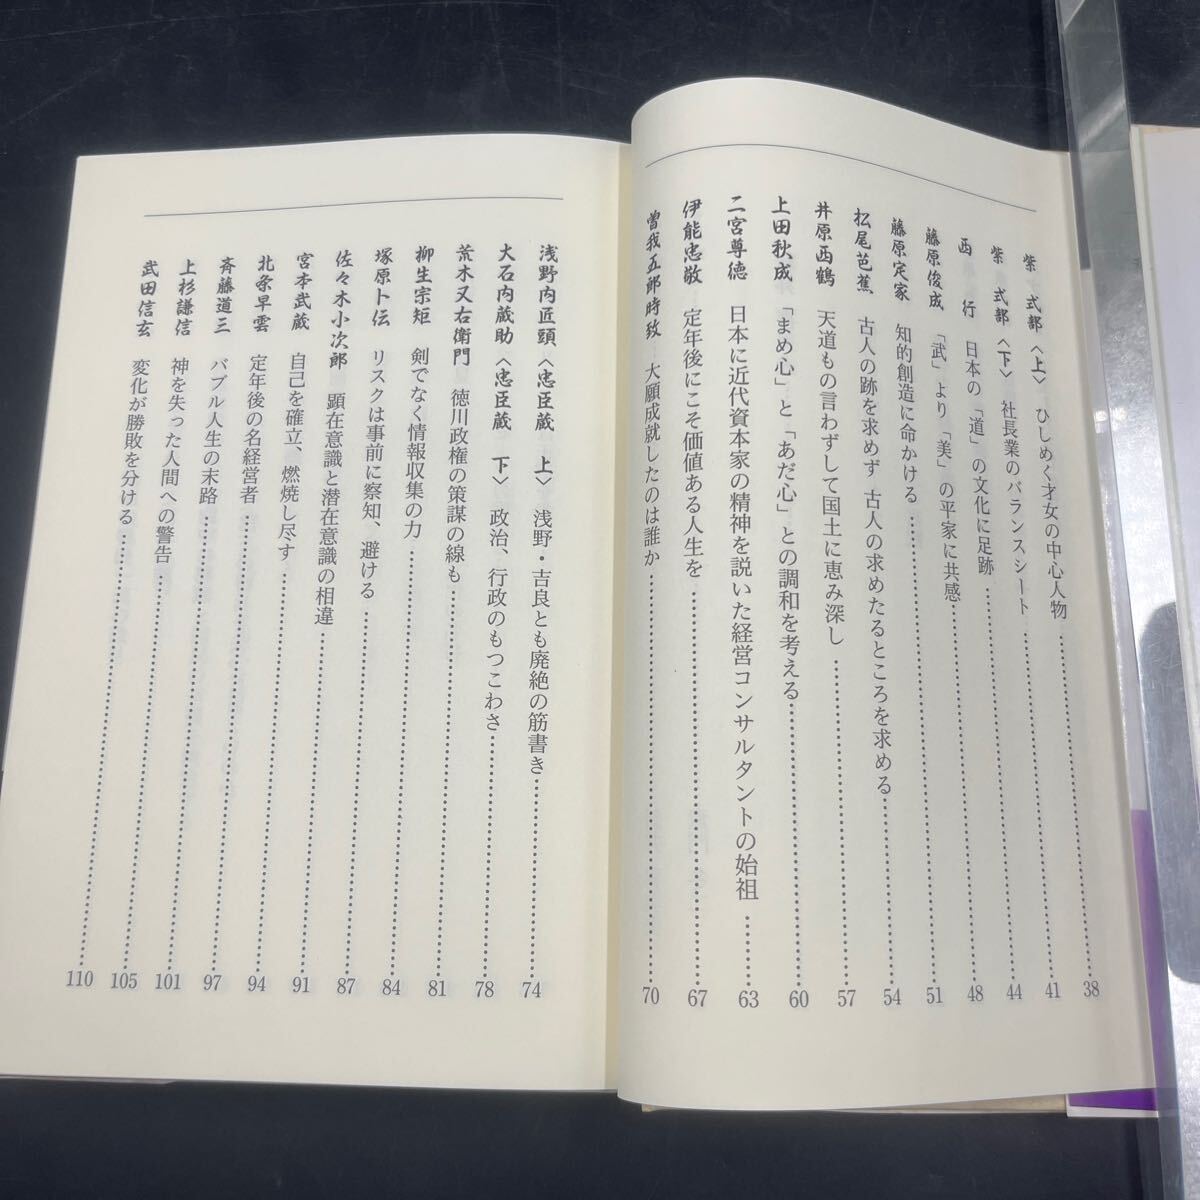 紫　式部〈上〉　ひしめく才女の中心人物……38
紫　式部〈下〉　社長業のバランスシート……41
西　行　日本の「道」の文化に足跡……44
藤原俊成　「武」より「美」の平家に共感……48
藤原定家　知的創造に命かける……51
松尾芭蕉　古人の跡を求めず　古人の求めたるところを求める……54
井原西鶴　天道もの言わずして国土に恵み深し……57
上田秋成　「まめ心」と「あだ心」との調和を考える……60
二宮尊徳　日本に近代資本家の精神を説いた経営コンサルタントの始祖……63
伊能忠敬　定年後にこそ価値ある人生を……67
曽我五郎時致　大願成就したのは誰か……70
浅野内匠頭〈忠臣蔵　上〉　浅野・吉良とも廃絶の筋書き……74
大石内蔵助〈忠臣蔵　下〉　政治、行政のもつこわさ……78
荒木又右衛門　徳川政権の策謀の線も……81
柳生宗矩　剣でなく情報収集の力……84
塚原卜伝　リスクは事前に察知、避ける……87
佐々木小次郎　顕在意識と潜在意識の相違……91
宮本武蔵　自己を確立、燃焼し尽す……94
北条早雲　定年後の名経営者……97
斉藤道三　バブル人生の末路……101
上杉謙信　神を失った人間への警告……105
武田信玄　変化が勝敗を分ける……110